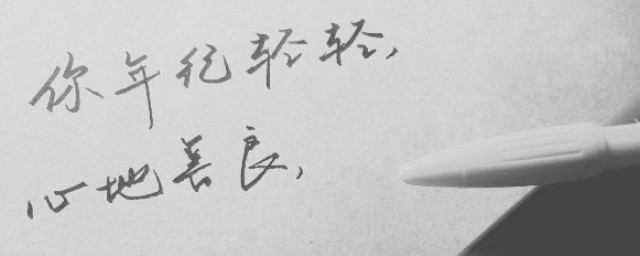 你年纪轻轻，
心地善良，